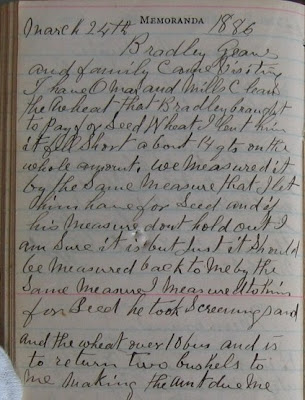 March 24th MEMORANDA 1886
Bradley Geans
and family Came Visiting
I have Omar and Mills Clean
the Wheat that Bradley braught
to Pay for Seed Wheat I lent him
it fell Short about 14 qts on the
whole amount, we measured it
by the Same Measure that I let
him have for Seed and if
his Measure dont hold out I
am Sure it is but Just it Should
be Measured back to Me by the
Same Measure I Measured to him
for Seed he took Screenings and
and the wheat over 10 bus and is
to return two bushels to
me making the amt due Me